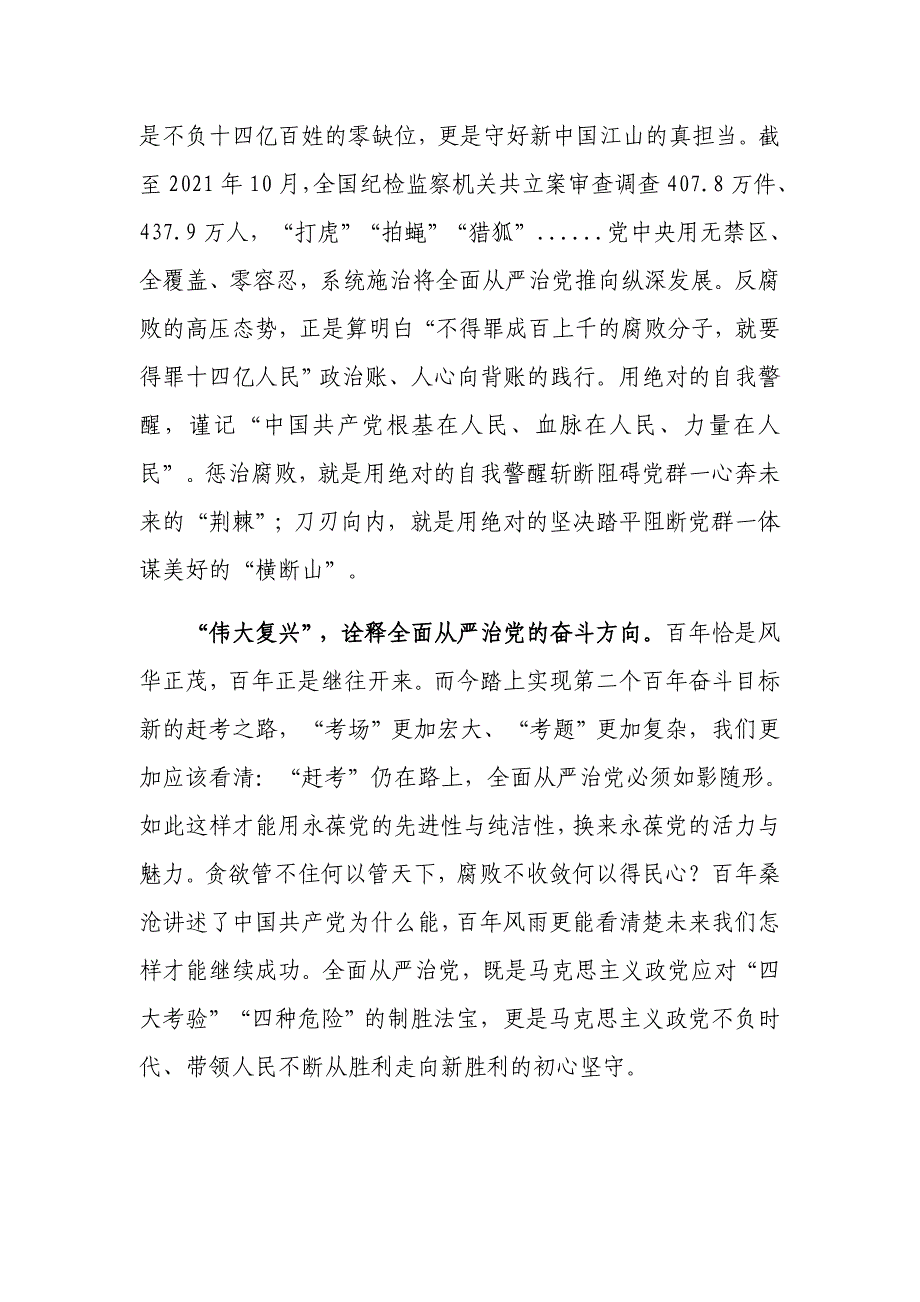 是不负十四亿百姓的零缺位，更是守好新中国江山的真担当。截
至 2021 年 10 月，全国纪检监察机关共立案审查调查 407.8 万件、
437.9 万人，“打虎”“拍蝇”“猎狐”......党中央用无禁区、
全覆盖、零容忍，系统施治将全面从严治党推向纵深发展。反腐
败的高压态势，正是算明白“不得罪成百上千的腐败分子，就要
得罪十四亿人民”政治账、人心向背账的践行。用绝对的自我警
醒，谨记“中国共产党根基在人民、血脉在人民、力量在人
民”。惩治腐败，就是用绝对的自我警醒斩断阻碍党群一心奔未
来的“荆棘”；刀刃向内，就是用绝对的坚决踏平阻断党群一体
谋美好的“横断山”。
“伟大复兴”，诠释全面从严治党的奋斗方向。百年恰是风
华正茂，百年正是继往开来。而今踏上实现第二个百年奋斗目标
新的赶考之路，“考场”更加宏大、“考题”更加复杂，我们更
加应该看清：“赶考”仍在路上，全面从严治党必须如影随形。
如此这样才能用永葆党的先进性与纯洁性，换来永葆党的活力与
魅力。贪欲管不住何以管天下，腐败不收敛何以得民心？百年桑
沧讲述了中国共产党为什么能，百年风雨更能看清楚未来我们怎
样才能继续成功。全面从严治党，既是马克思主义政党应对“四
大考验”“四种危险”的制胜法宝，更是马克思主义政党不负时
代、带领人民不断从胜利走向新胜利的初心坚守。